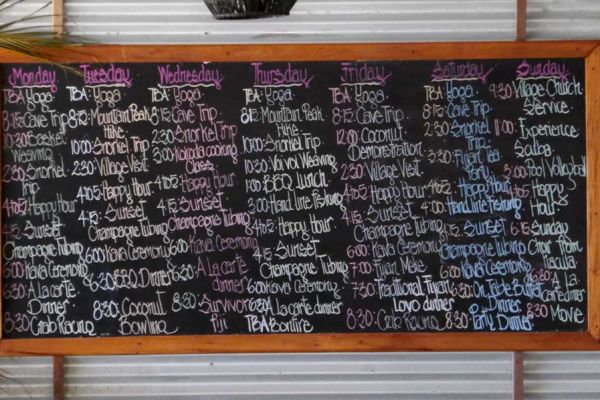 Monday
TBA: Yoga
8:15: Cave Trip
10:30: Basket
Weaving
2:30: Snorkel
Trip
4:05: Happy Hour
4:15: Sunset
Champagne Tubing
6:00: Kava Ceremony
6:30: A La carte
Dinner
8:30: Crab Racing
Tuesday
TBA: Yoga
8:15: Mountain Peak
Hike
10:00: Snorkel Trip
2:30: Village Visit
4:05: Happy Hour
4:15: Sunset
Champagne Tubing
6:00: Kava Ceremony
6:30: BBQ Dinner
8:30: Coconut
Bowling
Wednesday
TBA: Yoga
8:15: Cave Trip
2:30: Snorkel Trip
3:00: Kokoda cooking
Class
4:05: Happy Hour
4:15: Sunset
Champagne Tubing
6:00: Kava Ceremony
6:30: A La carte
dinner
8:30: Survivor
Fiji
Thursday
TBA: Yoga
8:15: Mountain Peak
Hike
10:00: Snorkel Trip
10:30: Voi Voi Weaving
1:00: BBQ Lunch
3:00: Hand Line Fishing
4:05: Happy Hour
4:15: Sunset
Champagne Tubing
6:00: Kava Ceremony
6:30: A La carte dinner
TBA: Bonfire
Friday
TBA: Yoga
8:15: Cave Trip
12:00: Coconut
Demonstration
2:30: Village Visit
4:05: Happy Hour
4:15: Sunset
Champagne Tubing
6:00: Kava Ceremony
7:00: Fijian Meke
7:30: Traditional Fijian
Lovo dinner
8:30: Crab Racing
Saturday
TBA: Yoga
8:15: Cave Trip
2:30: Snorkel
Trip
3:30: Fijian Tea
Party
4:05: Happy Hour
4:00: Hand Line Fishing
4:15: Sunset
Champagne Tubing
6:00: Kava Ceremony
6:30: On Table Buffet
Dinner
8:30: Party Dinner
Sunday
9:30: Village Church
Service
11:00: Experience
Salloa
3:00: Pool Volleyball
4:05: Happy
Hour
6:15: Sunday
Choir from
6:30: A La
Carte dinner
8:30: Movie